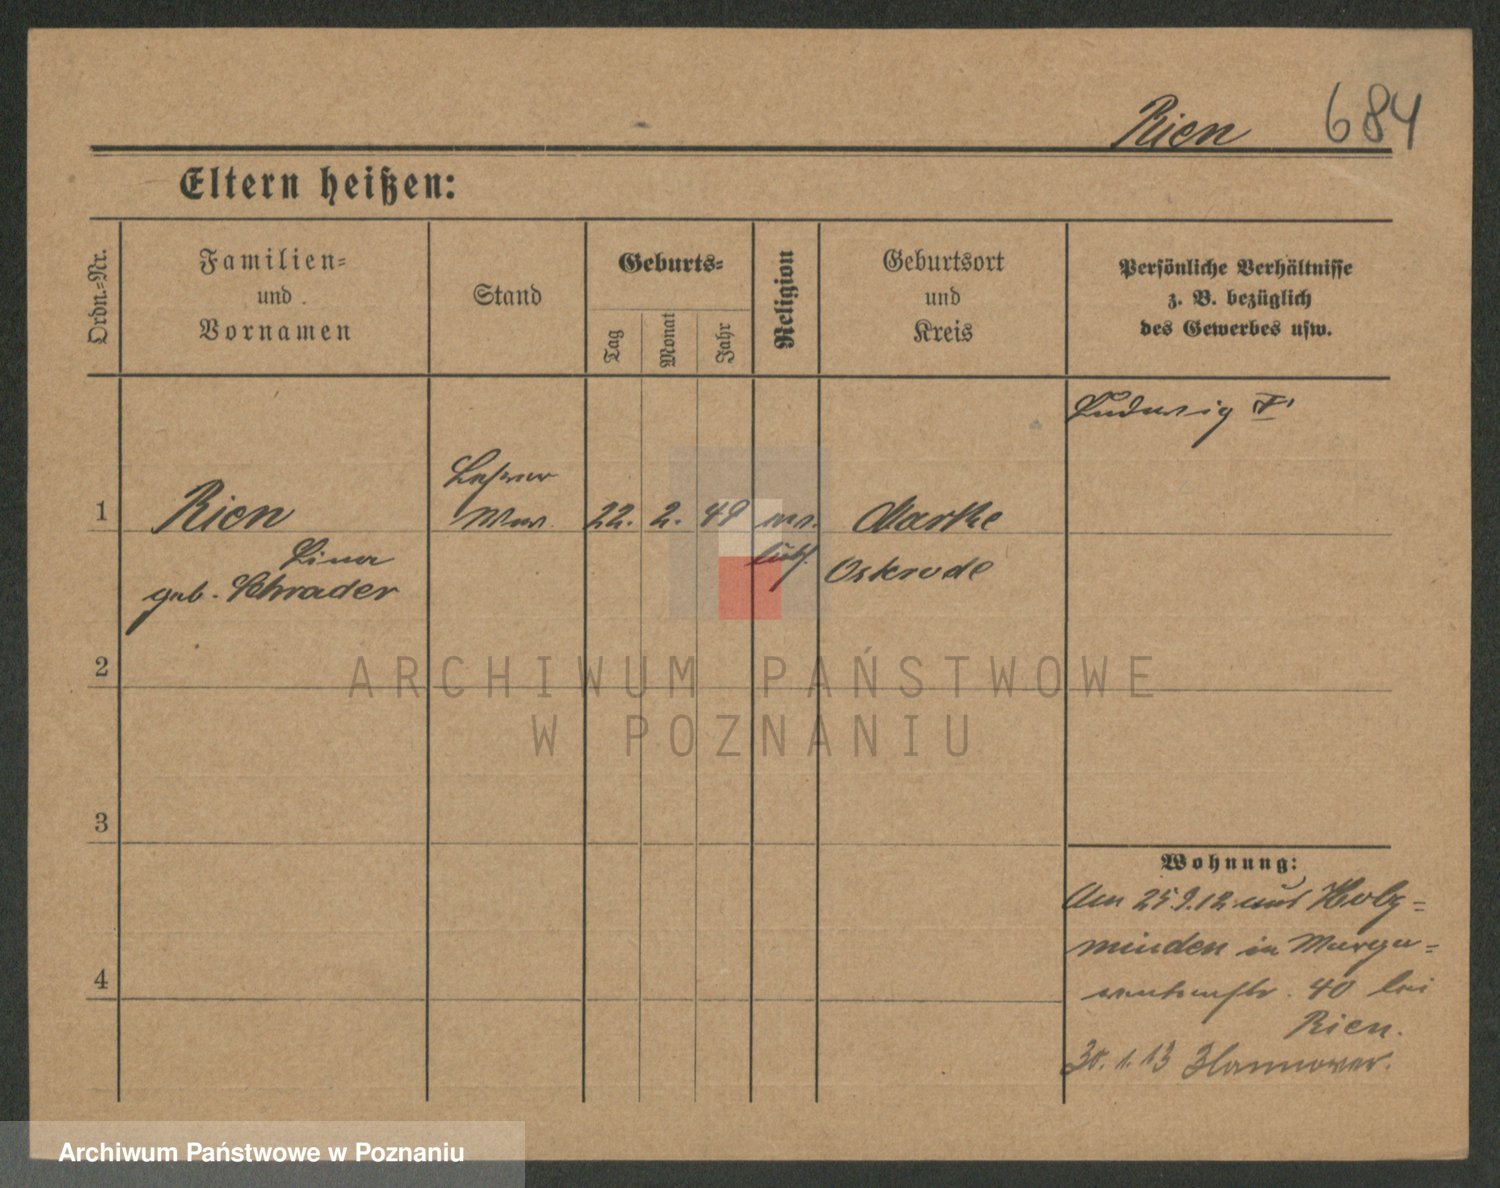 Rien 684
Eltern heißen:
Ordn.-Nr.
Familien-
und
Vornamen
Stand
Geburts-
Tag
Monat
Jahr
Religion
Geburtsort
und
Kreis
Persönliche Verhältnisse
z. B. bezüglich
des Gewerbes usw.
Ludwig †
1
Rien
Lina
geb. Schrader
Lehrer
Ww.
22. 2. 49
ev.
luth.
Marke
Osterode
2
3
4
Wohnung:
Am 25.9.12 aus Holz=
minden in Marga=
40 bei
Rien.
30.1.13 Hannover.
ARCHIWUM PAŃSTWOWE
W POZNANIU
Archiwum Państwowe w Poznaniu